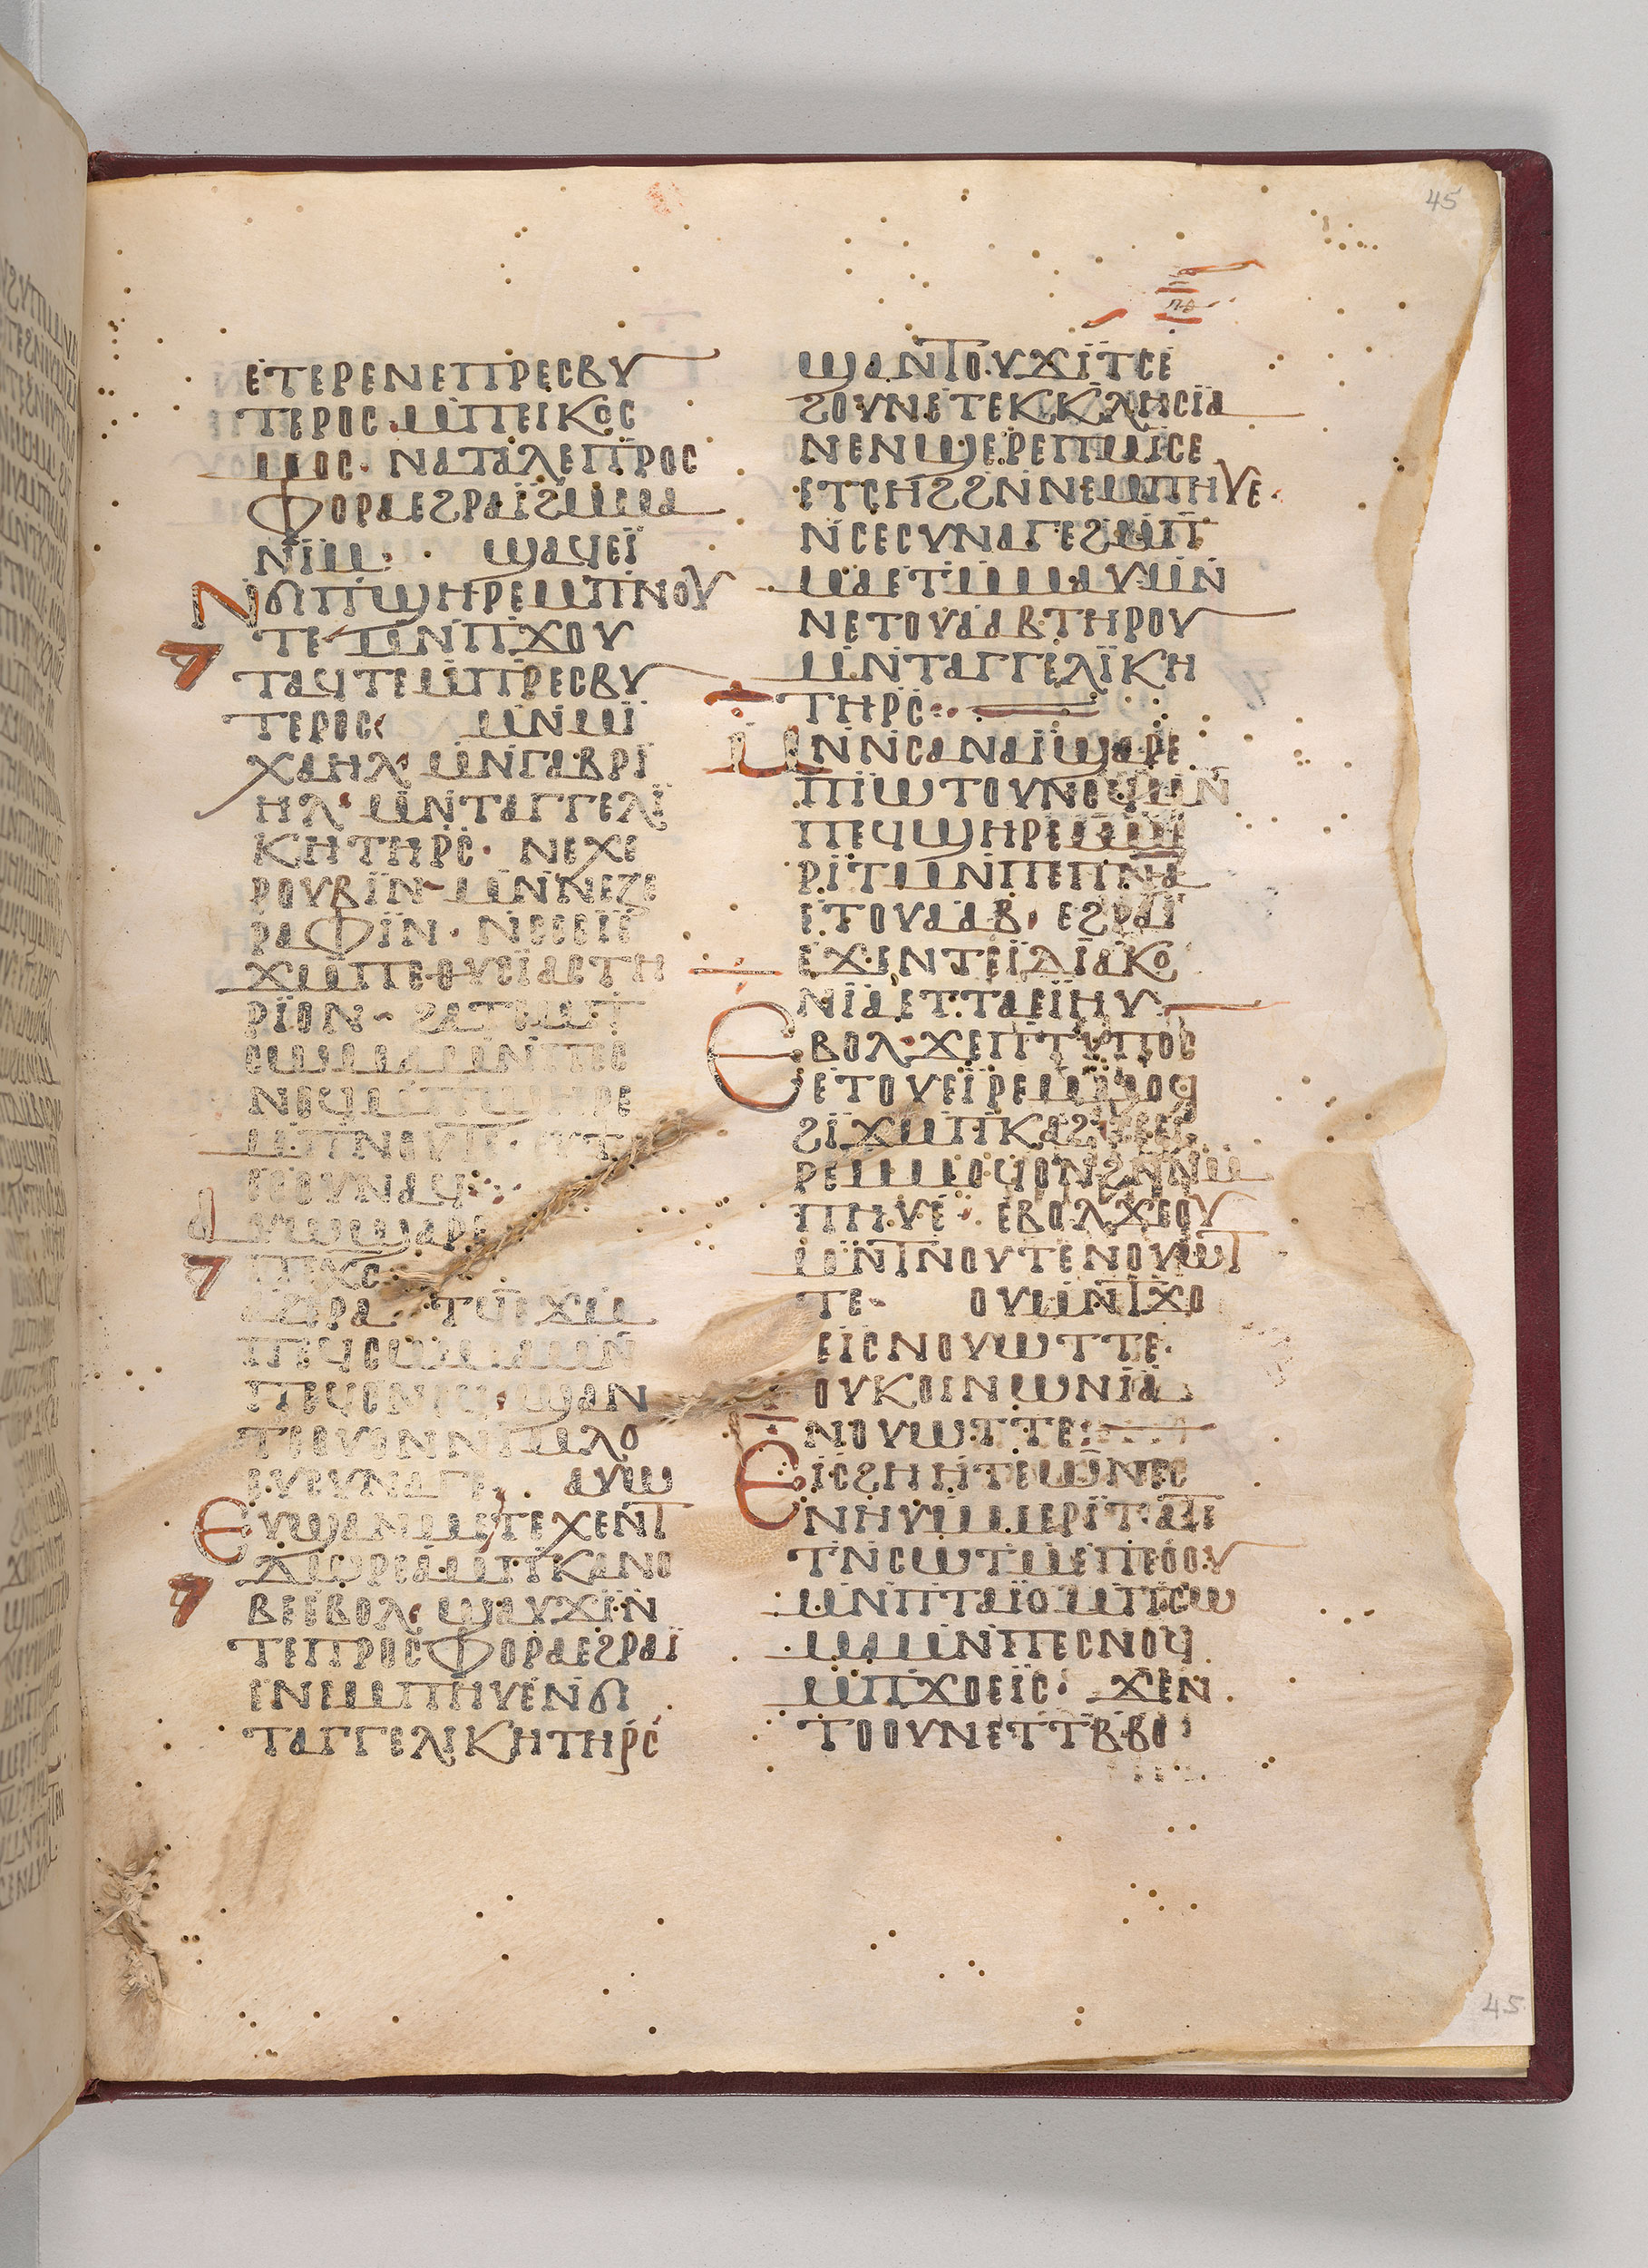 45
ⲡⲑ
ⲉⲧⲉⲣⲉⲛⲉⲡⲣⲉⲥⲃⲩ
ⲧⲉⲣⲟⲥ ⲙⲡⲉⲓⲕⲟⲥ
ⲙⲟⲥ· ⲛⲁⲧⲁⲗⲉⲡⲣⲟⲥ
ⲫⲟⲣⲁⲉϩⲣⲁⲓ̈ϩⲙⲙⲁ
ⲛⲓⲙ· · ϣⲁϥⲉⲓ̈
ⲛϭⲓⲡϣⲏⲣⲉⲙⲡⲛⲟⲩ
ⲧⲉ ⲙⲛⲡϫⲟⲩ
ⲧⲁϥⲧⲉⲙⲡⲣⲉⲥⲃⲩ
ⲧⲉⲣⲟⲥ ⲙⲛⲙⲓ̈
ⲭⲁⲏⲗ ⲙⲛⲅⲁⲃⲣⲓ
ⲏⲗ· ⲙⲛⲧⲁⲅⲅⲉⲗⲓ̈
ⲕⲏⲧⲏⲣⲥ̄· ⲛⲉⲭⲉ
ⲣⲟⲩⲃⲓ̈ⲛ ⲙⲛⲛⲉⲍⲉ
ⲣⲁⲫⲓ̈ⲛ· ⲛⲥⲉⲉⲓ̈ⲉ
ϫⲙⲡⲉⲑⲩⲥⲓⲁⲥⲧⲏ
ⲣⲓ̈ⲟⲛ
ⲥⲱⲙⲁ ⲙⲛⲡⲉⲥ
ⲛⲟϥⲙⲡϣⲏⲣⲉ
ⲙⲡⲛⲟⲩⲧⲉ·
ⲉϩⲟⲩⲛⲁϥ
ⲁⲩⲱϣⲁⲣⲉ
ⲡⲉⲭⲥ
ⲡⲉϥⲥⲱⲙⲁⲙⲛ
ⲡⲉϥⲥⲛⲟϥ ϣⲁⲛ
ⲉⲩⲥⲩⲛⲁⲅⲉ· ⲁⲩⲱ
ⲉⲩϣⲁⲛⲙⲉⲧⲉϫⲉⲛⲧ
ⲇⲱⲣⲉⲁⲙⲡⲕⲁⲛⲟ
ⲃⲉⲉⲃⲟⲗ ϣⲁⲩϫⲓ̈ⲛ
ⲧⲉⲡⲣⲟⲥⲫⲟⲣⲁⲉϩⲣⲁⲓ̈
ⲉⲛⲉⲙⲡⲏⲩⲉⲛϭⲓ
ⲧⲁⲅⲅⲉⲗⲓⲕⲏⲧⲏⲣⲥ
ϣⲁⲛⲧⲟⲩϫⲓ̈ⲧⲥⲉ
ϩⲟⲩⲛⲉⲧⲉⲕⲕⲗⲏⲥⲓ̈ⲁ
ⲛⲉⲛϣⲉⲣⲉⲡⲙⲓ̈ⲥⲉ
ⲉⲧⲥⲏϩϩⲛⲛⲉⲙⲡⲏⲩⲉ·
ⲛⲥⲉⲥⲩⲛⲁⲅⲉϩⲙⲡ
ⲙⲁⲉⲧⲙⲙⲁⲩ ⲙⲛ
ⲛⲉⲧⲟⲩⲁⲁⲃ ⲧⲏⲣⲟⲩ
ⲙⲛⲧⲁⲅⲅⲉⲗⲓ̈ⲕⲏ
ⲧⲏⲣⲥ̄
ⲙⲛⲛⲥⲁⲛⲁⲓ̈ϣⲁⲣⲉ
ⲡⲓ̈ⲱⲧⲟⲩⲛⲟϥⲙⲛ
ⲡⲉϥϣⲏⲣⲉⲙⲙⲉ
ⲣⲓⲧⲙⲛⲡⲉⲡⲛⲁ
ⲉⲧⲟⲩⲁⲁⲃ· ⲉϩⲣⲁⲓ̈
ⲉϫⲉⲛⲧⲉⲓ̈ⲇⲓ̈ⲁⲕⲟ
ⲛⲓ̈ⲁⲉⲧⲧⲁⲉⲓ̈ⲏⲩ
ⲉⲃⲟⲗ ϫⲉⲡⲧⲩⲡⲟⲥ
ⲉⲧⲟⲩⲉⲓ̈ⲣⲉⲙⲙⲟϥ
ϩⲓ̈ϫⲙⲡⲕⲁϩ
ⲣⲉⲙⲙⲟϥⲟⲛϩⲛⲛⲙ
ⲡⲏⲩⲉ· ⲉⲃⲟⲗϫⲉⲟⲩ
ⲙⲛⲧⲛⲟⲩⲧⲉⲛⲟⲩⲱⲧ
ⲧⲉ· ⲟⲩⲙⲛⲧϫⲟ
ⲉⲓⲥⲛⲟⲩⲱⲧⲧⲉ·
ⲟⲩⲕⲟⲓⲛⲱⲛⲓ̈ⲁ
ⲛⲟⲩⲱⲧⲧⲉ:
ⲉⲓⲥϩⲏⲏⲧⲉⲱⲛⲉⲥ
ⲛⲏⲩⲙⲙⲉⲣⲓ̈ⲧ ⲁⲧⲉ
ⲧⲛⲥⲱⲧⲙⲉⲡⲉⲟⲟⲩ
ⲙⲛⲡⲧⲁⲓ̈ⲟⲙⲡⲥⲱ
ⲙⲁⲙⲛⲡⲉⲥⲛⲟϥ
ⲙⲡϫⲟⲉⲓ̈ⲥ· ϫⲉⲛ
ⲧⲟⲟⲩⲛⲉⲧⲧⲃⲃⲟ
45